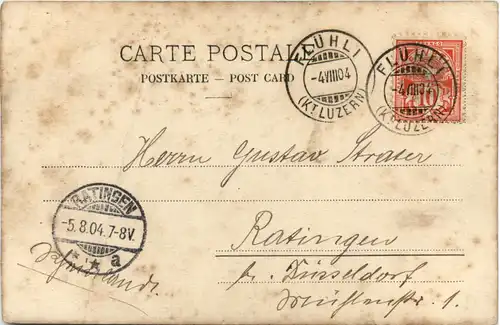 CARTE POSTALE
POSTKARTE – POST CARD
FLÜHLI
-4.VIII.04
(KT. LUZERN)
FLÜHLI
-4.VIII.04
(KT. LUZERN)
10
Herrn Gustav Strater
RATINGEN
-5.8.04.7-8V.
* * a
Ratingen
b. Düsseldorf
Mülheimerstr. 1.